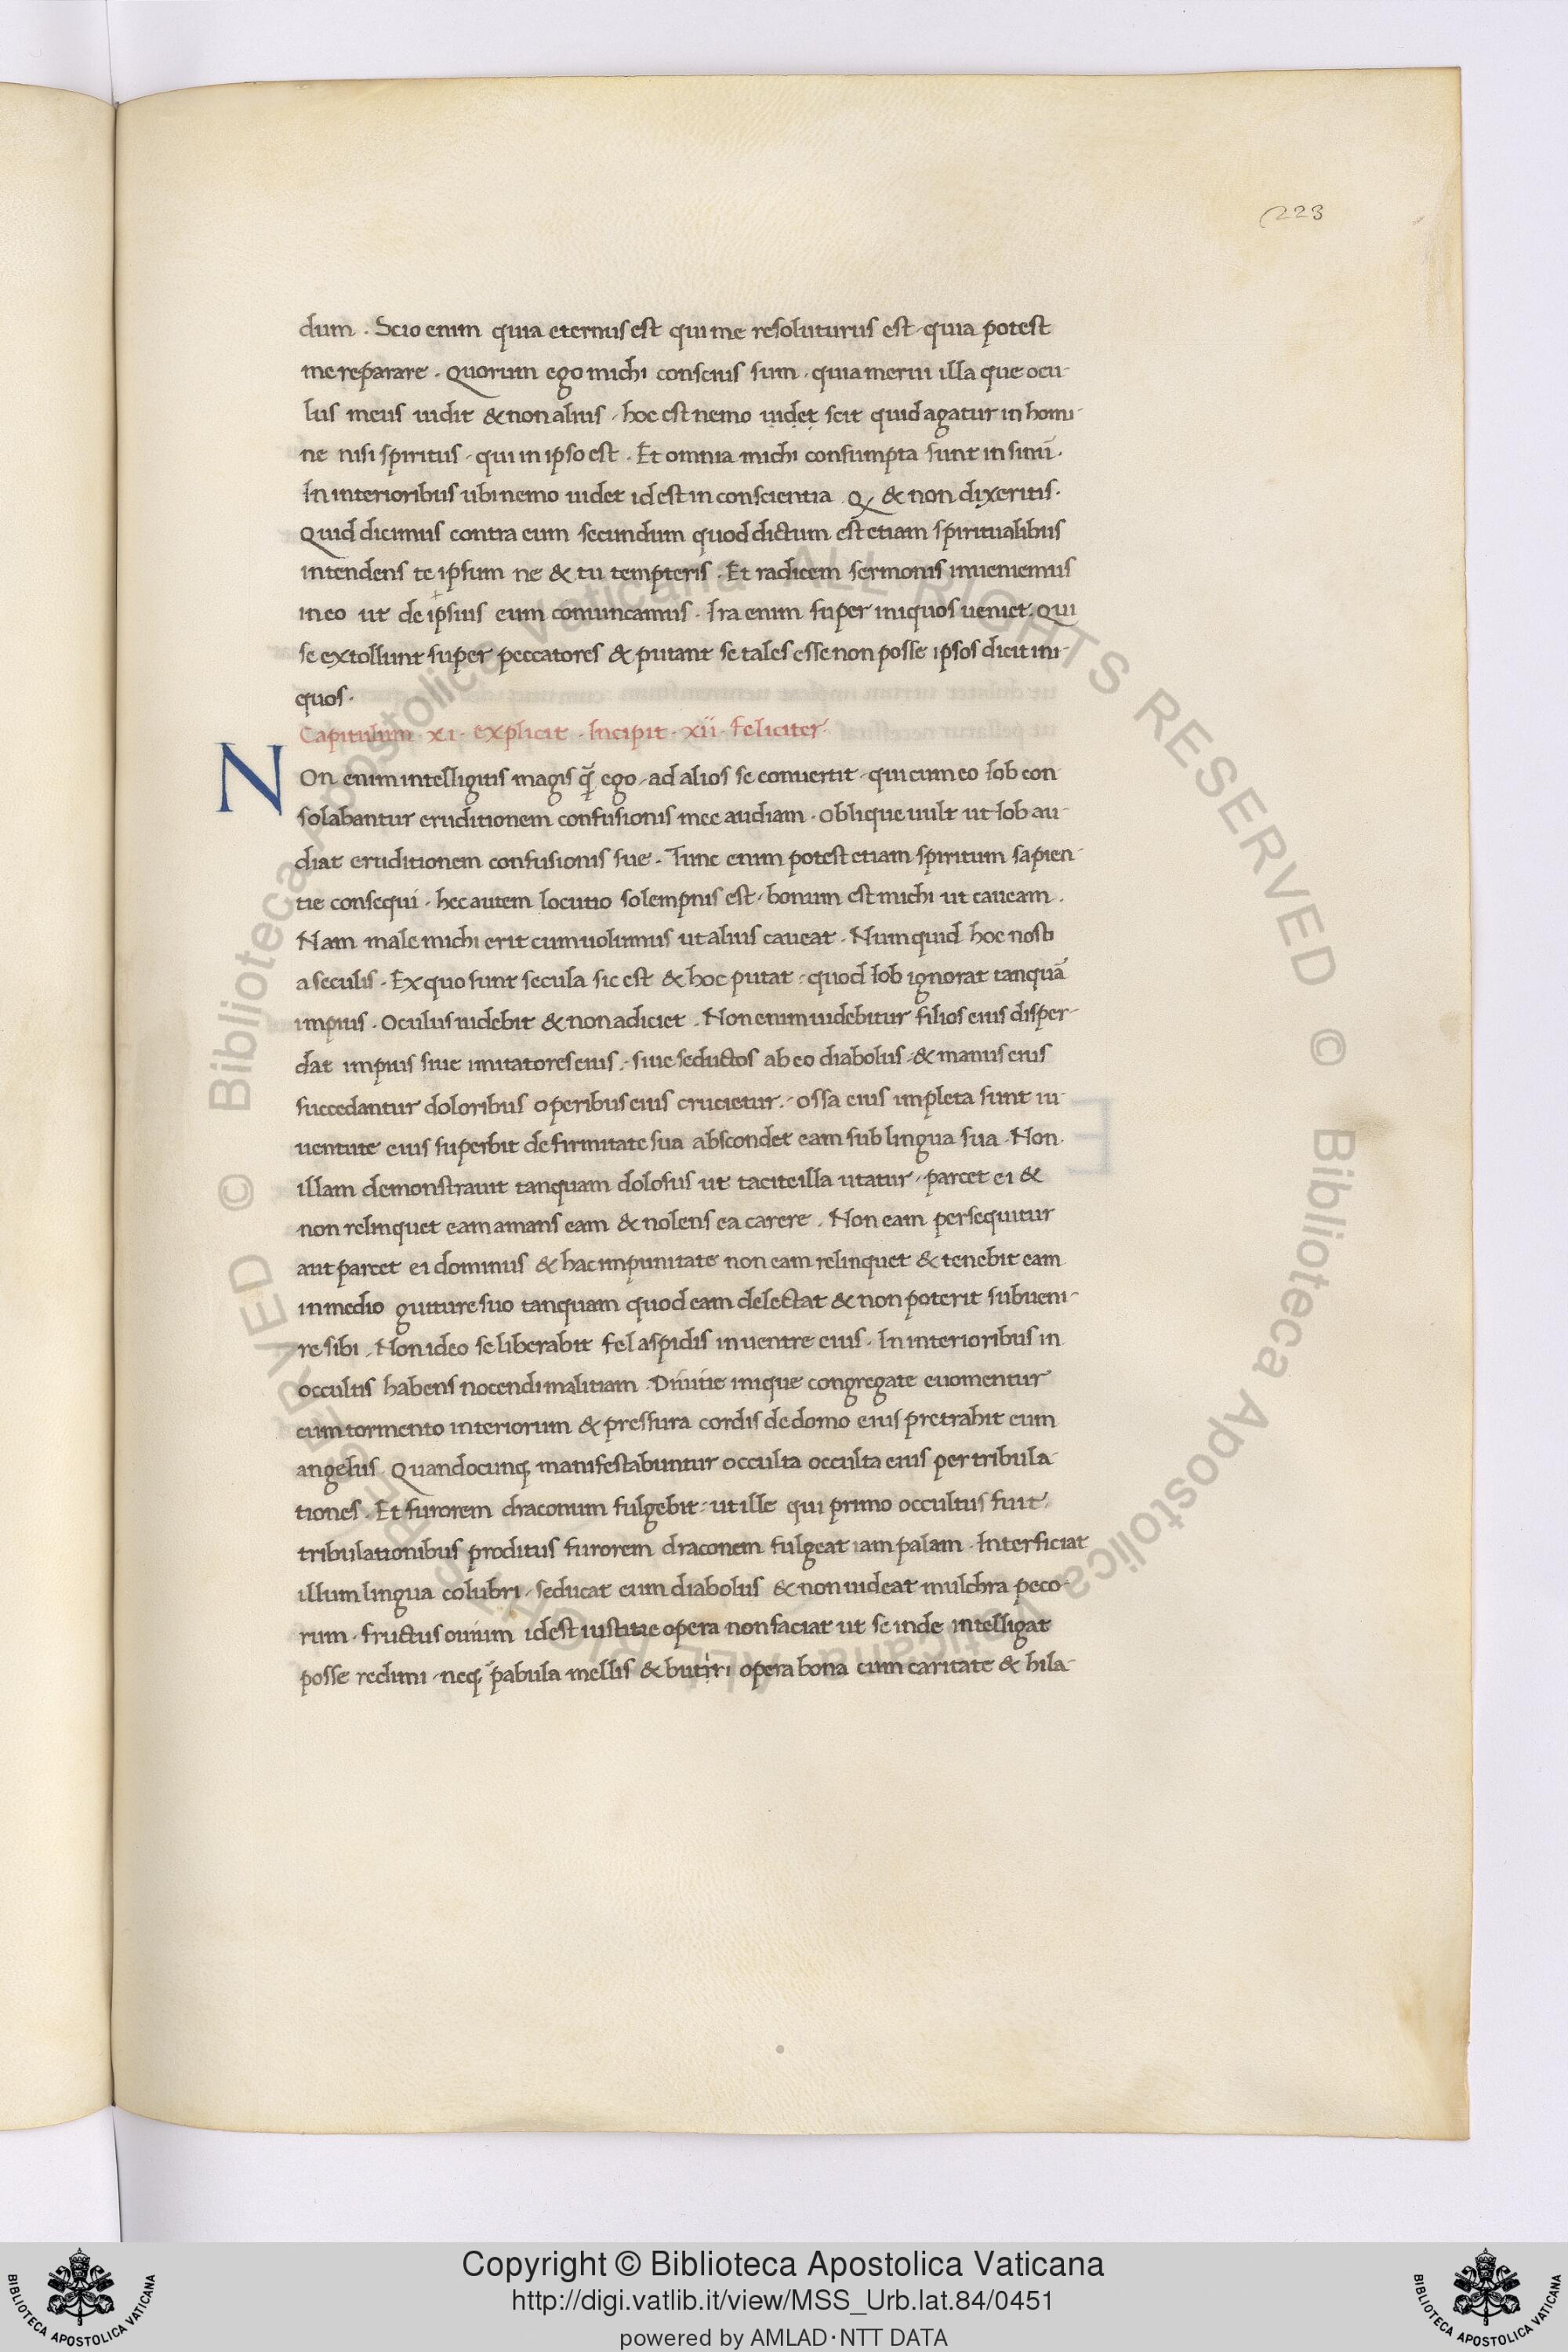 223
dum . Scio enim quia eternus est qui me resoluturus est quia potest
me reparare . Quorum ego michi conscius sum . quia merui illa que ocu-
lus meus uidit & non alius . hoc est nemo uidet scit quid agatur in homi-
ne nisi spiritus . qui in ipso est . Et omnia michi consumpta sunt in sinū .
In interioribus ubi nemo uidet id est in conscientia . Q & non dixeritis .
Quid dicimus contra eum secundum quod dictum est etiam spiritualibus
intendens te ipsum ne & tu tempteris . Et radicem sermonis inueniemus
in eo ut de ipsius eum comuncamus . Ira enim super iniquos ueniet . Qui
se extollunt super peccatores & putant se tales esse non posse ipsos dicit ini-
quos .
Capitulum . xi . explicit . Incipit . xii . feliciter .
NOn enim intelligitis magis q̃ ego . ad alios se conuertit . qui cum eo Iob con
solabantur eruditionem confusionis mee audiam . Oblique uult ut Iob au-
diat eruditionem confusionis sue . Tunc enim potest etiam spiritum sapien-
tie consequi . hec autem locutio solempnis est . bonum est michi ut caueam .
Nam male michi erit cum uolumus ut alius caueat . Numquid hoc nosti
a seculis . Ex quo sunt secula sic est & hoc putat . quod Iob ignorat tanquā
impius . Oculus uidebit & non adiciet . Non enim uidebitur filios eius disper-
dat impius siue imitatores eius . siue seductos ab eo diabolus . & manus eius
succedantur doloribus operibus eius crucietur . ossa eius impleta sunt iu-
uentute eius superbit de firmitate sua abscondet eam sub lingua sua . Non
illam demonstrauit tanquam dolosus ut tacite illa utatur . parcet ei &
non relinquet eam amans eam & nolens ea carere . Non eam persequitur
aut parcet ei dominus & hac impunitate non eam relinquet & tenebit eam
in medio gutture suo tanquam quod eam delectat & non poterit subueni-
re sibi . Non ideo se liberabit fel aspidis in uentre eius . In interioribus in
occultis habens nocendi malitiam . Diuitie inique congregate euomentur
cum tormento interiorum & pressura cordis de domo eius pretrahit eum
angelus . Quandocunq; manifestabuntur occulta occulta eius per tribula-
tiones . Et furorem draconum fulgebit . ut ille qui primo occultus fuit .
tribulationibus proditus furorem draconem fulgeat iam palam . Interficiat
illum lingua colubri . seducat eum diabolus & non uideat mulchra peco-
rum . fructus ouium id est iustitie opera non faciat ut se inde intelligat
posse redimi . neq; pabula mellis & butiri opera bona cum caritate & hila-
© Biblioteca Apostolica Vaticana ALL RIGHTS RESERVED © Biblioteca Apostolica Vaticana ALL RIGHTS RESERVED
Copyright © Biblioteca Apostolica Vaticana
http://digi.vatlib.it/view/MSS_Urb.lat.84/0451
powered by AMLAD·NTT DATA
BIBLIOTECA APOSTOLICA VATICANA
BIBLIOTECA APOSTOLICA VATICANA